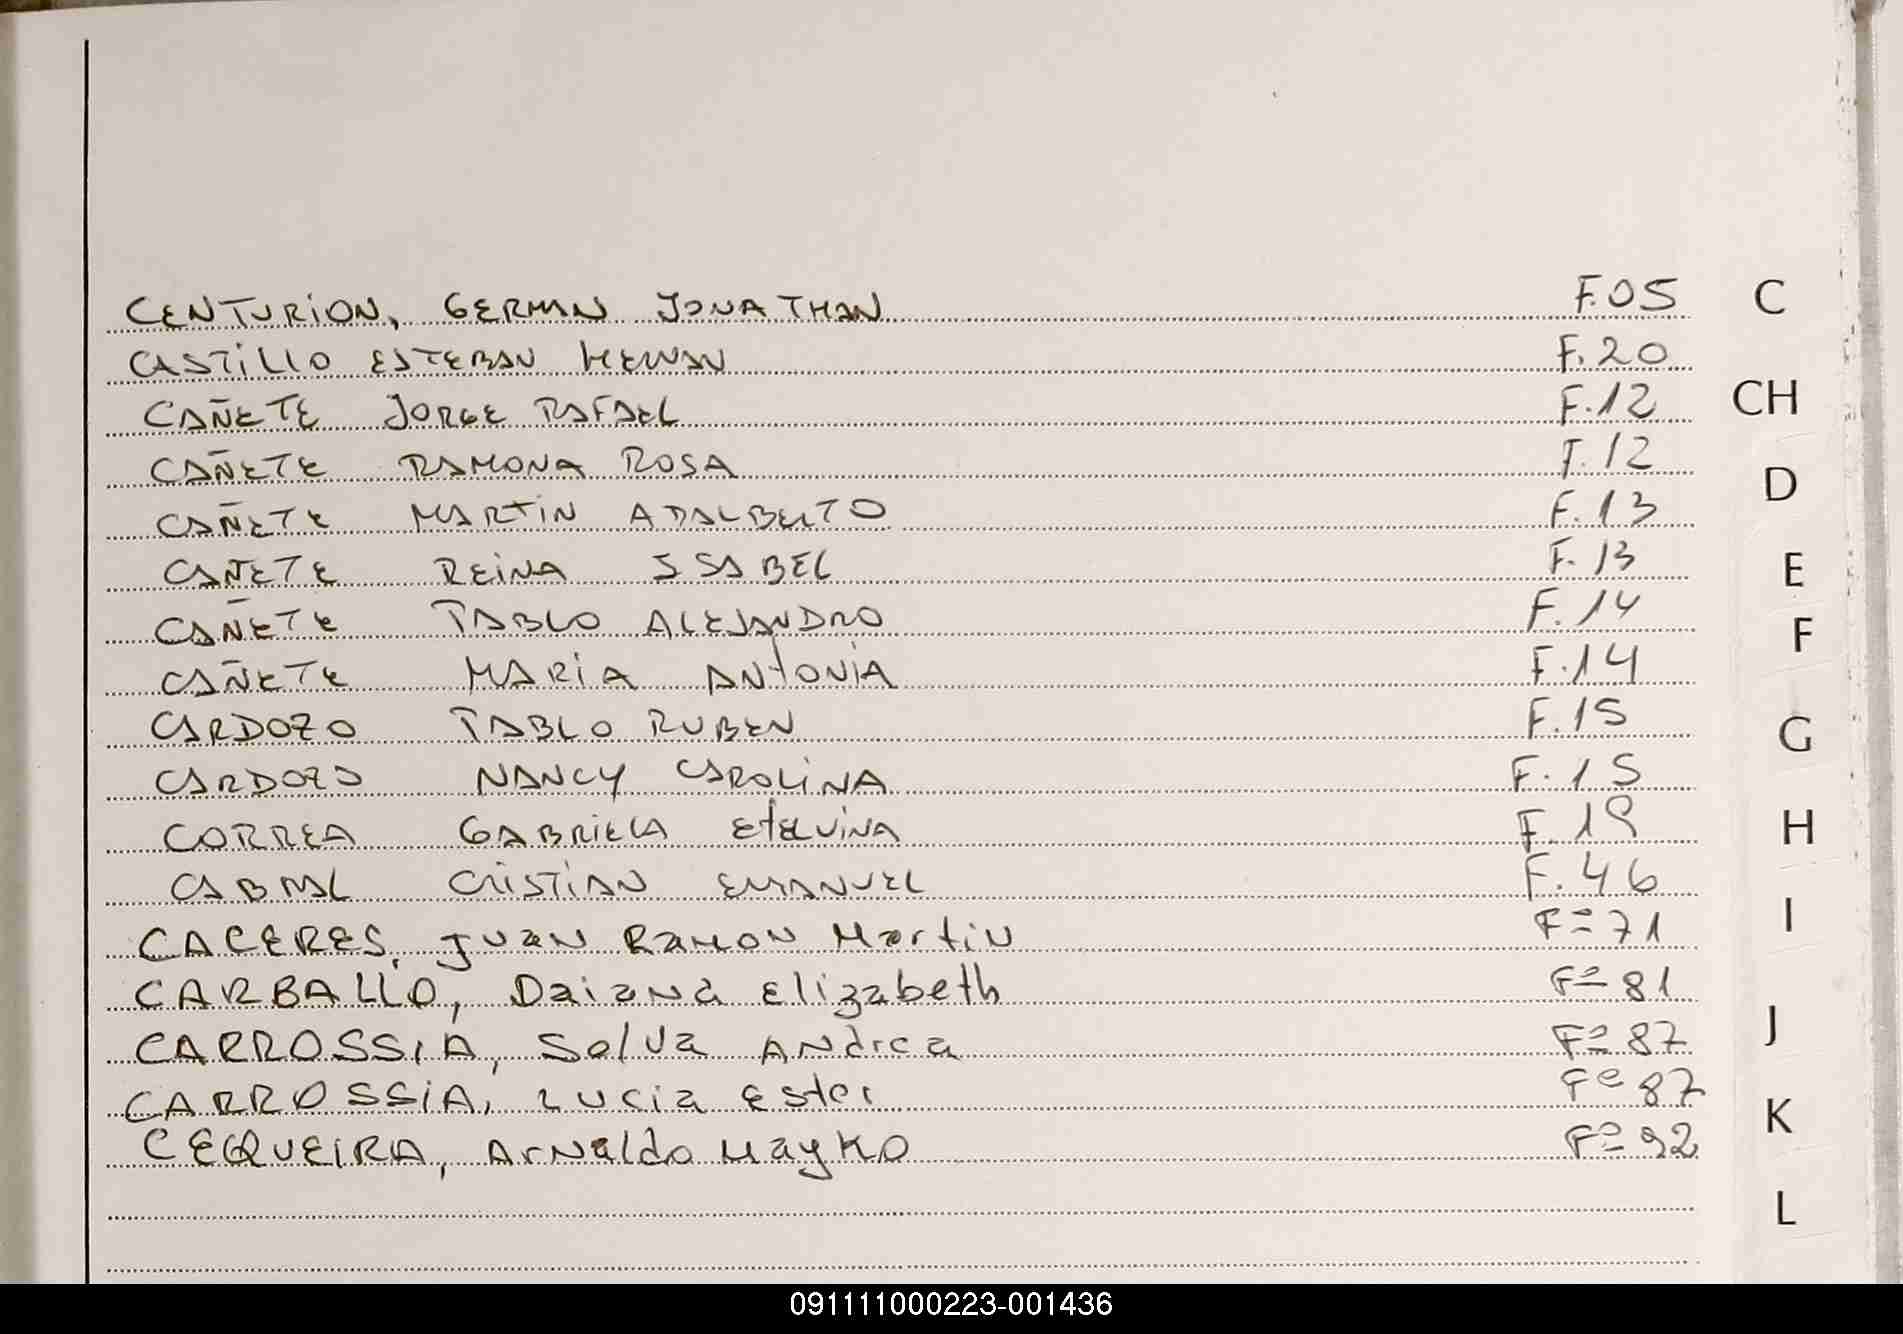 CENTURION, GERMAN JONATHAN F.05
CASTILLO ESTEBAN HERNAN F.20
CAÑETE JORGE RAFAEL F.12
CAÑETE RAMONA ROSA F.12
CAÑETE MARTIN ADALBERTO F.13
CAÑETE REINA ISABEL F.13
CAÑETE PABLO ALEJANDRO F.14
CAÑETE MARIA ANTONIA F.14
CARDOZO PABLO RUBEN F.15
CARDOZO NANCY CAROLINA F.15
CORREA GABRIELA ETELVINA
CABRAL CRISTIAN EMANUEL F.46
CACERES, Juan Ramon Martin Fº 71
CARBALLO, Daiana Elizabeth Fº 81
CARROSSIA, Selva Andrea Fº 87
CARROSSIA, Lucia Ester Fº 87
CEQUEIRA, Arnaldo Mayko Fº 92
C
CH
D
E
F
G
H
I
J
K
L
091111000223-001436